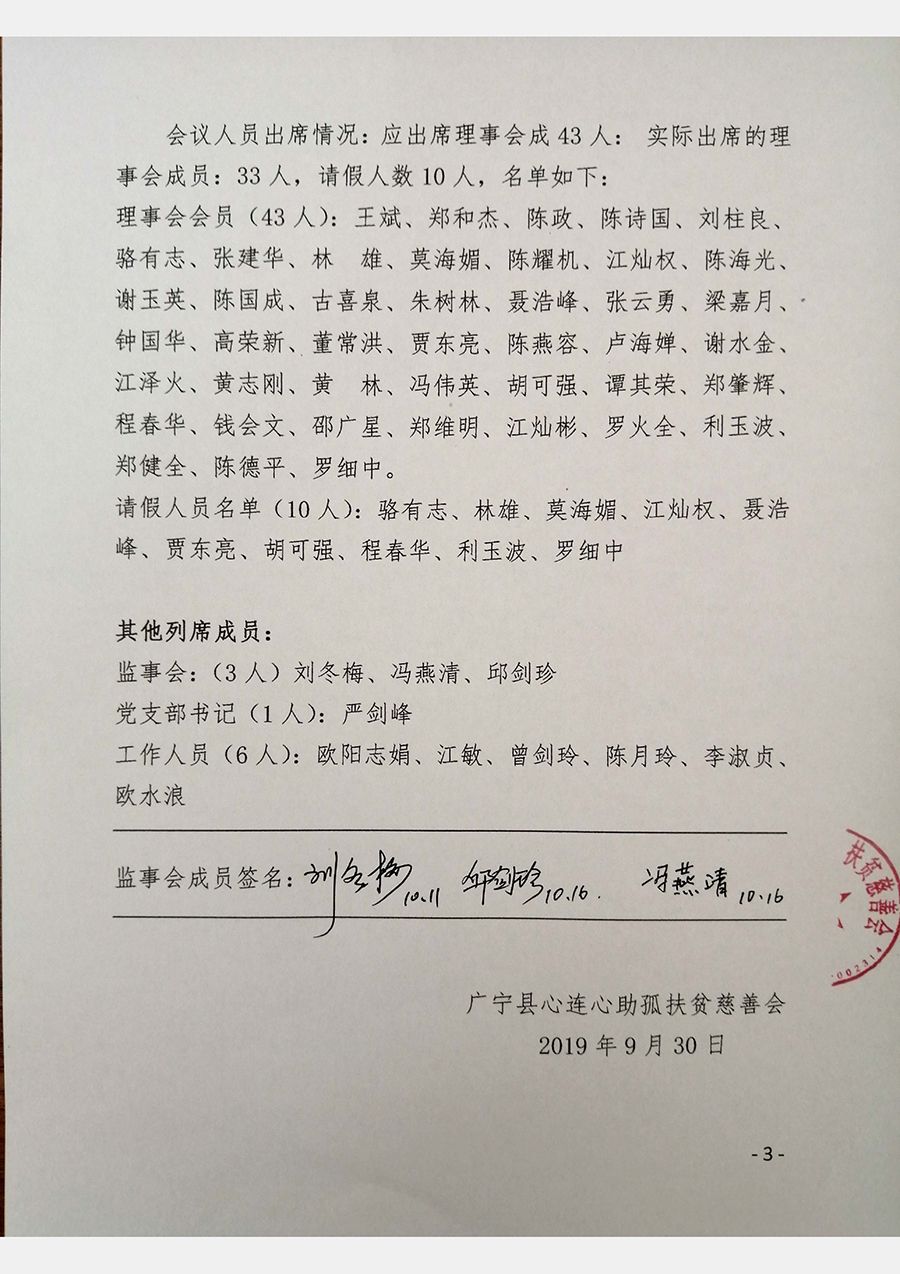 会议人员出席情况：应出席理事会成43人： 实际出席的理
事会成员：33人，请假人数10人，名单如下：
理事会会员（43人）：王斌、郑和杰、陈政、陈诗国、刘柱良、
骆有志、张建华、林　雄、莫海媚、陈耀机、江灿权、陈海光、
谢玉英、陈国成、古喜泉、朱树林、聂浩峰、张云勇、梁嘉月、
钟国华、高荣新、董常洪、贾东亮、陈燕容、卢海婵、谢水金、
江泽火、黄志刚、黄　林、冯伟英、胡可强、谭其荣、郑肇辉、
程春华、钱会文、邵广星、郑维明、江灿彬、罗火全、利玉波、
郑健全、陈德平、罗细中。
请假人员名单（10人）：骆有志、林雄、莫海媚、江灿权、聂浩
峰、贾东亮、胡可强、程春华、利玉波、罗细中
其他列席成员：
监事会：（3人）刘冬梅、冯燕清、邱剑珍
党支部书记（1人）：严剑峰
工作人员（6人）：欧阳志娟、江敏、曾剑玲、陈月玲、李淑贞、
欧水浪
监事会成员签名：刘冬梅10.11 邱剑珍10.16. 冯燕清10.16
扶贫慈善会
002314
广宁县心连心助孤扶贫慈善会
2019年9月30日
-3-